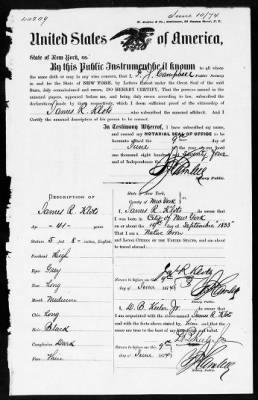 June 10/74
United States of America,
State of New York, ss.
By this Public Instrument be it known to all whom
the same doth or may in any wise concern, that I,
Public Notary
in and for the STATE OF NEW YORK, by Letters Patent under the Great Seal of the said
State, duly commissioned and sworn, DO HEREBY CERTIFY, That the persons named in the
annexed papers, appeared before me, and being duly sworn according to law, subscribed the
declarations made by them respectively, which I deem sufficient proof of the citizenship of
James R. Klots
named in said annexed affidavit. And I
Certify the annexed description of his person to be correct.
In Testimony Whereof, I have subscribed my name,
and caused my NOTARIAL SEAL OF OFFICE to be
hereunto affixed the 9th day of
June in the year
one thousand eight hundred and Seventy four
and of Independence the
Notary Public.
DESCRIPTION
OF
James R. Klots
Age - 41 -
Stature 5 . 8 inches, English
Forehead High
Eyes Grey
Nose Long
Mouth medium
Chin Long
Hair Black
Complexion Dark
Face Thin
State of New York,
County of New York
I, James R. Klots
do swear that I was born in City of New York
on or about the 19th day of September 1833
that I am a Native born
and Loyal CITIZEN OF THE UNITED STATES, and about
to travel abroad.
Jas R. Klots
Sworn to before me this 9th
June 1874
Notary Public.
I, W. B. Keeler Jr.
do swear that I am acquainted with the above named James R. Klots
and with the facts above stated by him and that the
same are true to the best of my knowledge and belief.
Sworn to before me this 9th
day of June 1874
Notary Public.